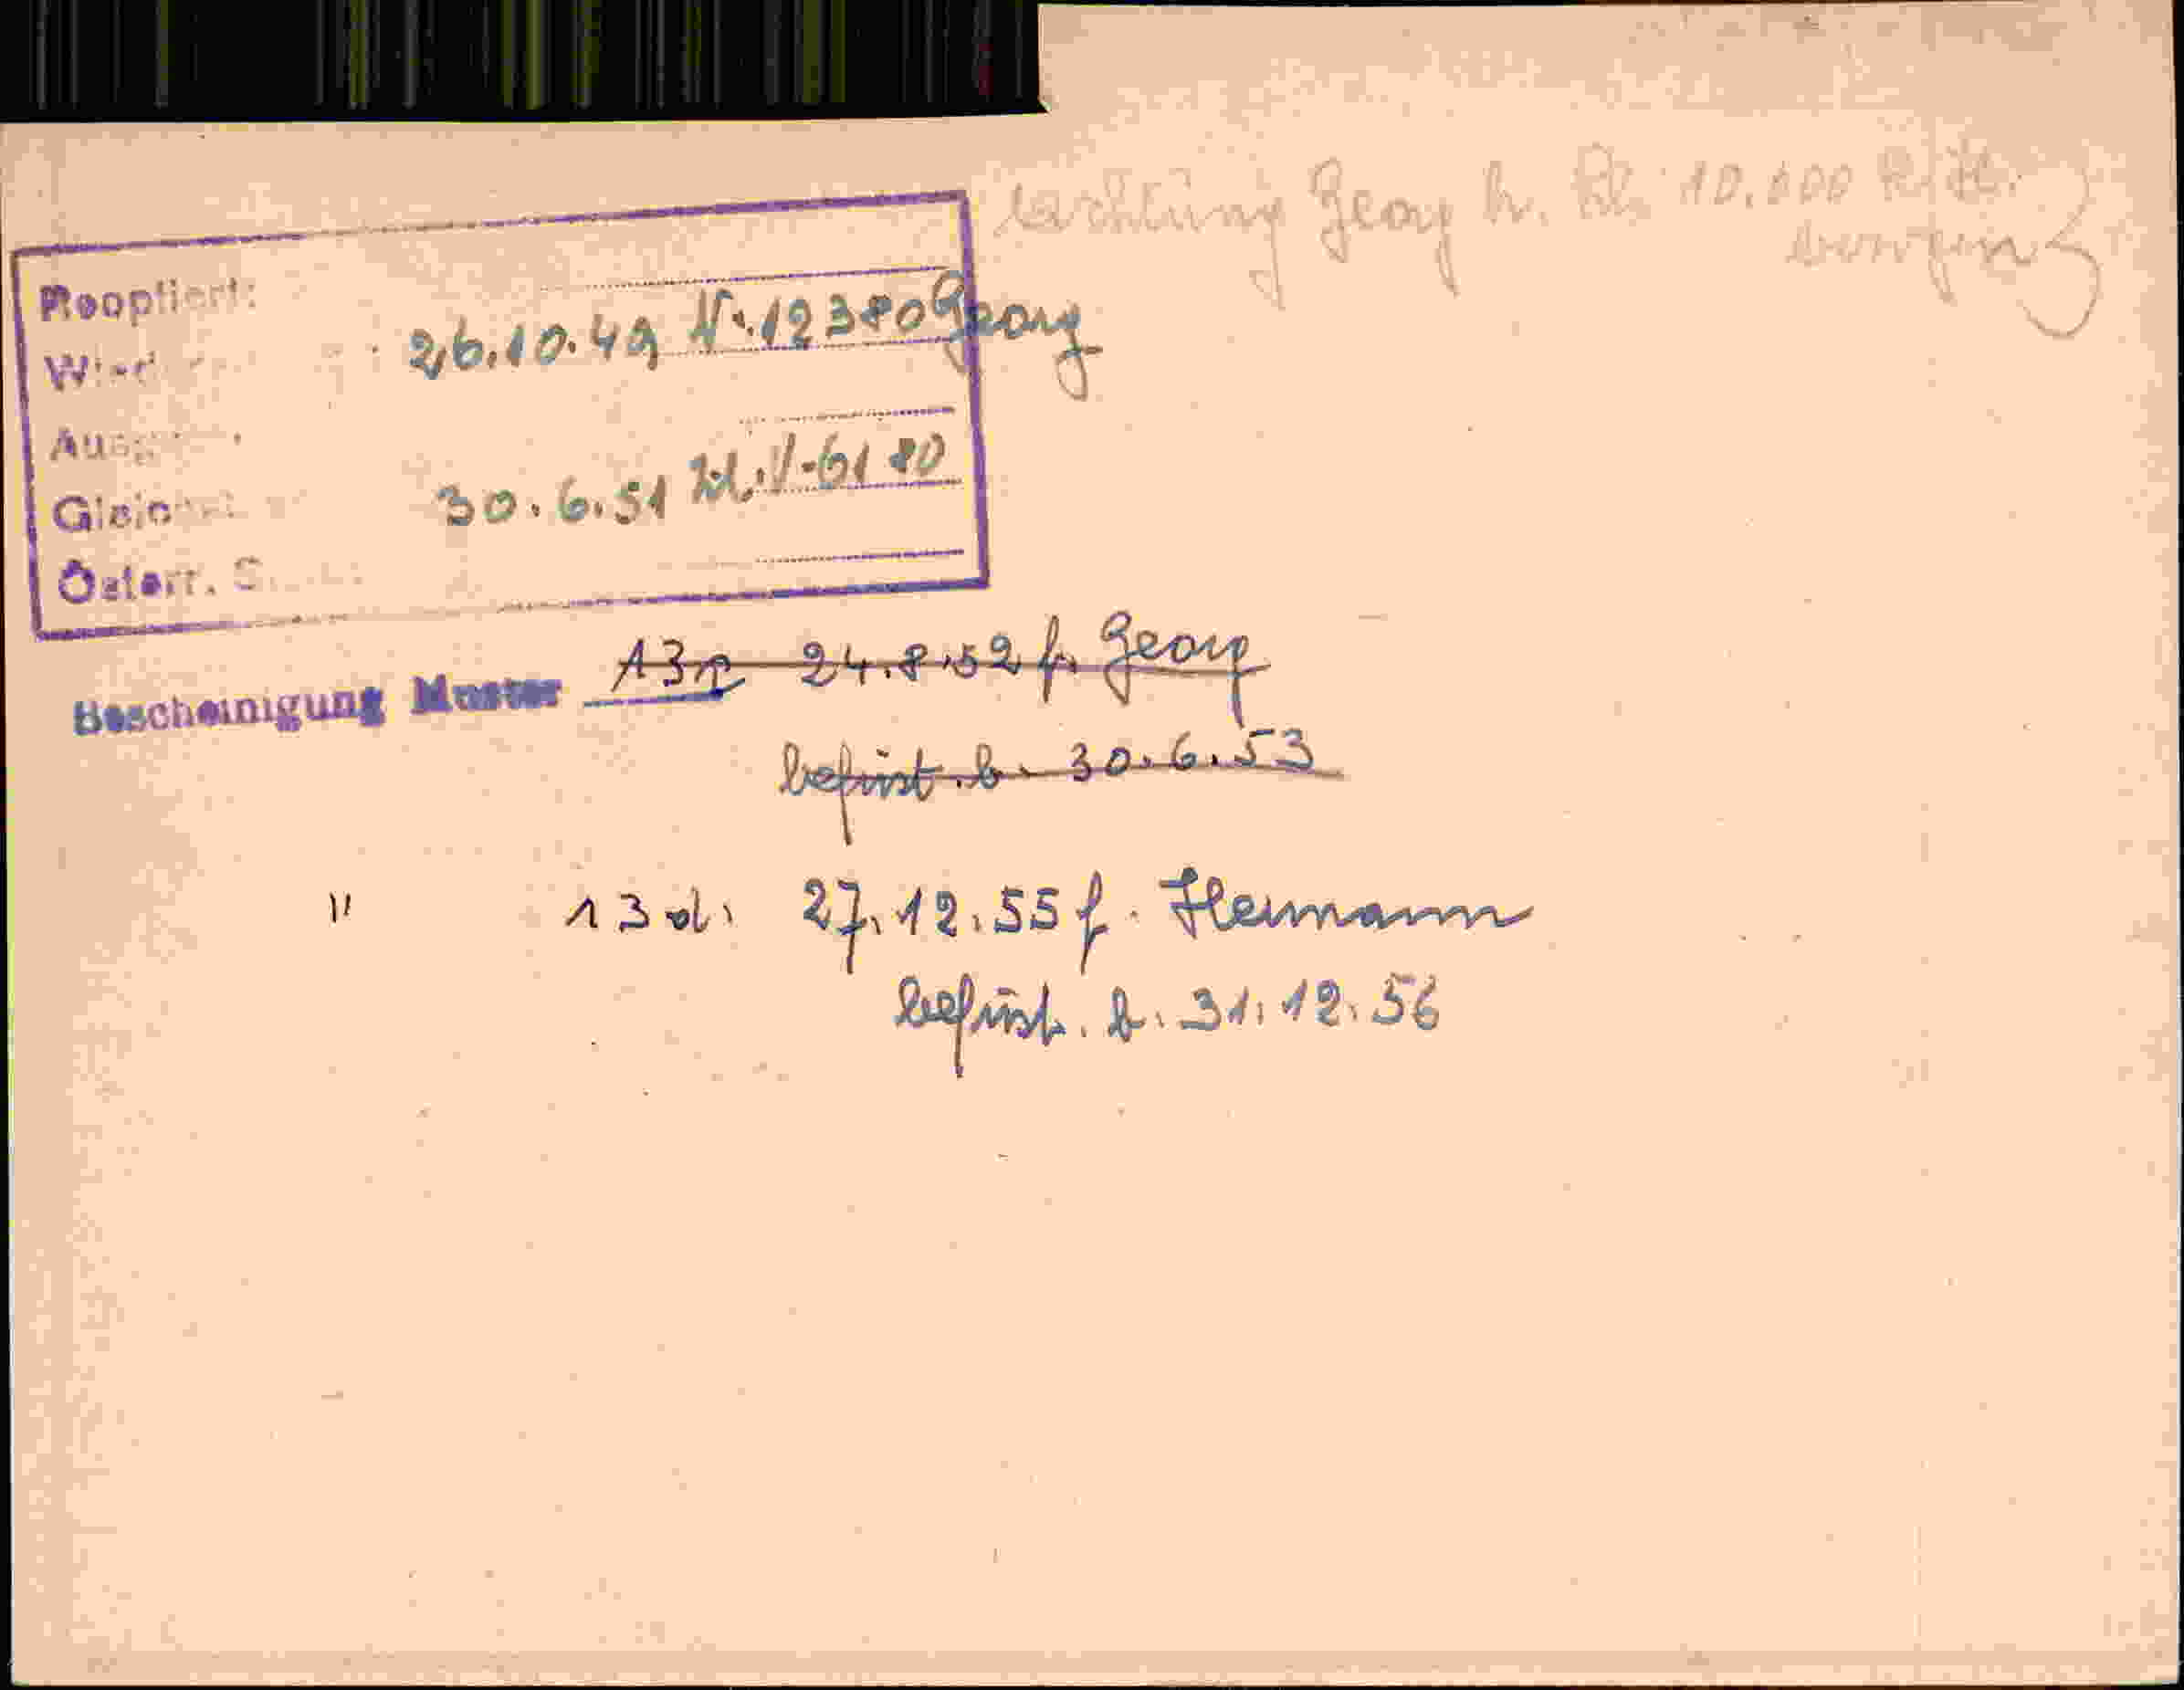 Achtung Georg h. 10.000 R.M.
Reoptiert:
26.10.49 V.12380 Georg
30.6.51 Zl. V-6180
Österr. S
Bescheinigung Muster 13r 24.8.52 f. Georg
befrist. b. 30.6.53
" 13d. 27.12.55 f. Hermann
befrist. b. 31.12.56